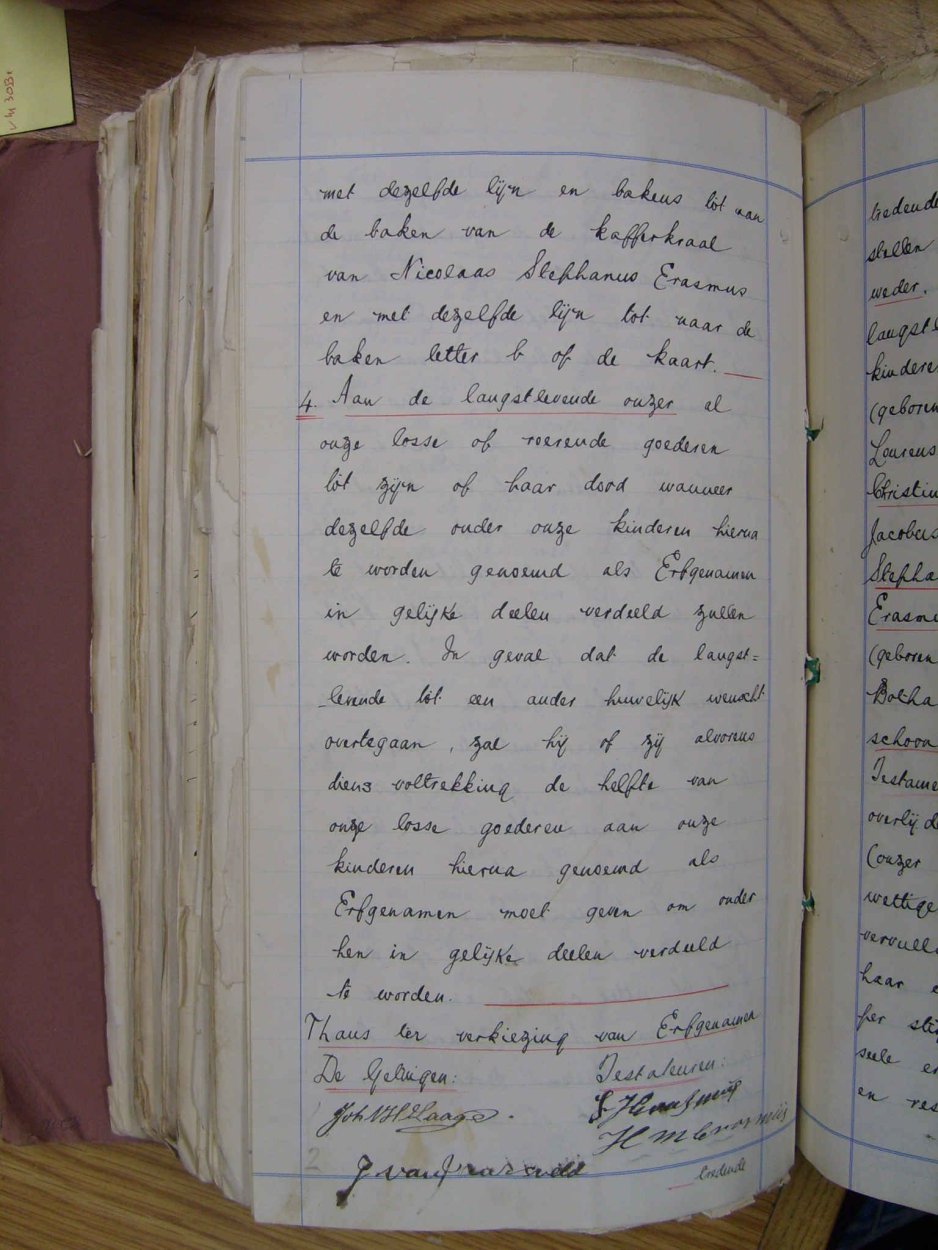 met dezelfde lijn en bakens tot aan
de baken van de kafferkraal
van Nicolaas Stephanus Erasmus
en met dezelfde lijn tot naar de
baken letter b of de kaart.
4. Aan de langstlevende onzer al
onze losse of roerende goederen
tot zijn of haar dood wanneer
dezelfde onder onze kinderen hierna
te worden genoemd als Erfgenamen
in gelijke deelen verdeeld zullen
worden. In geval dat de langst=
-levende tot een ander huwelijk wenscht
overtegaan, zal hij of zij alvorens
diens voltrekking de helfte van
onze losse goederen aan onze
kinderen hierna genoemd als
Erfgenamen moet geven om onder
hen in gelijke deelen verdeeld
te worden.
Thans ter verkiezing van Erfgenamen
De Getuigen: Testateuren:
tredende
tredende
stellen
weder.
langstl
kindere
(geboren
Lourens
Christin
Jacobus
Stepha
Erasm
(geboren
Botha
schoon
Testame
overlijde
(onzer
wettige
vervull
haar e
per sti
seele e
en res